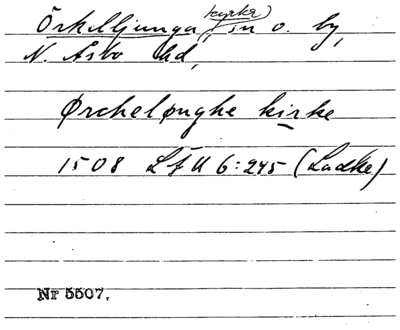 Örkelljunga (kyrka), sn o. by,
N. Åsbo hd,
Ørchelønghe kirke
1508 LÆU 6:245 (Ladke)
Nr 5507.